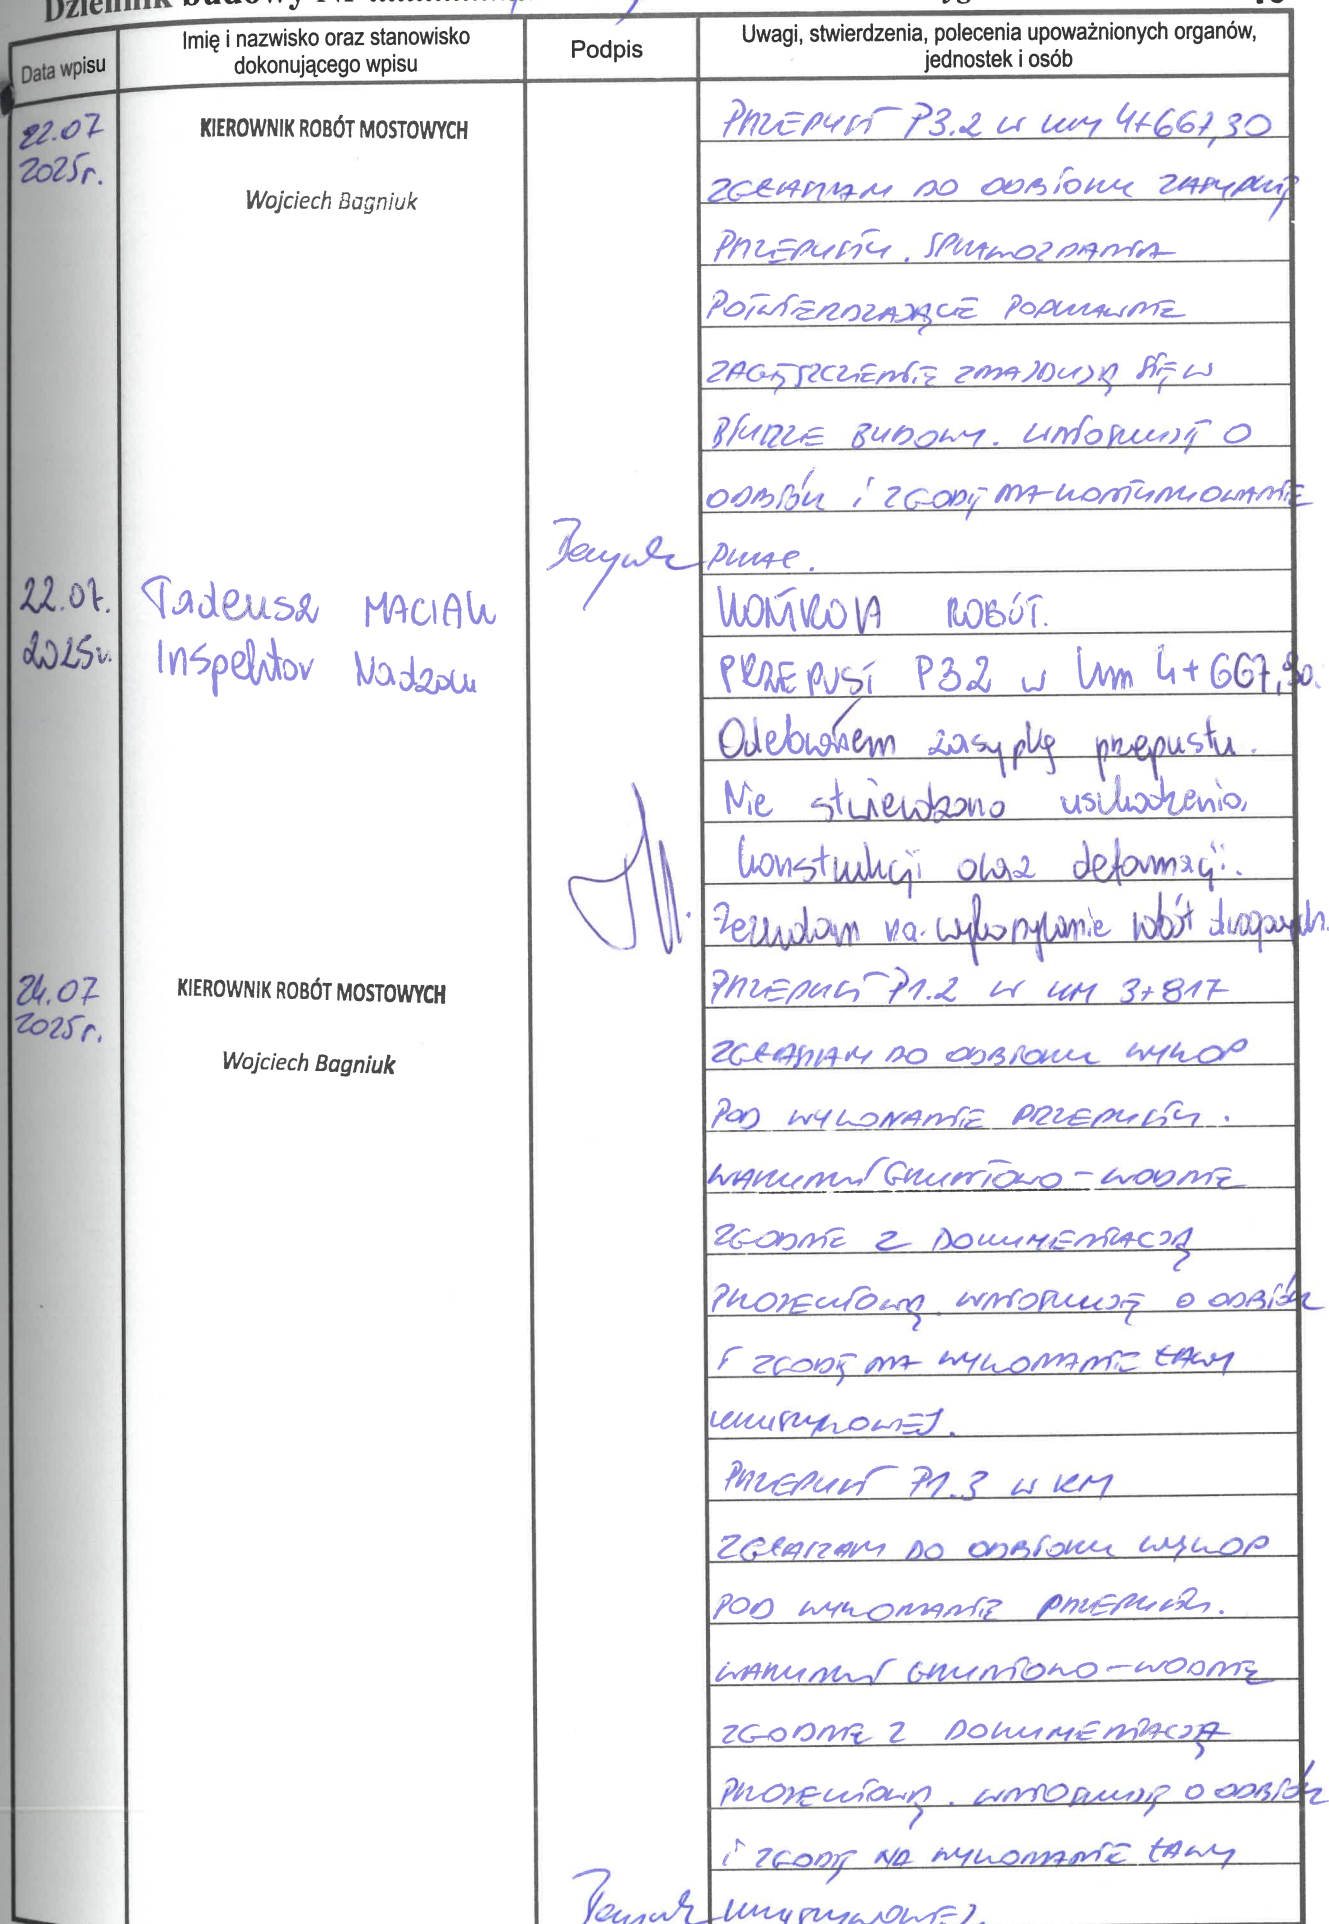 Dziennik budowy Nr
Data wpisu
Imię i nazwisko oraz stanowisko
dokonującego wpisu
Podpis
Uwagi, stwierdzenia, polecenia upoważnionych organów,
jednostek i osób
22.07
2025r.
KIEROWNIK ROBÓT MOSTOWYCH
Wojciech Bagniuk
PRZEPUST P3.2 W KM 4+667,30
ZGŁASZAM DO ODBIORU ZASYPKĘ
PRZEPUSTU. SPRAWOZDANIA
POTWIERDZAJĄCE POPRAWNE
ZAGĘSZCZENIE ZNAJDUJĄ SIĘ W
BIURZE BUDOWY. WNIOSKUJĘ O
ODBIÓR I ZGODĘ NA KONTYNUOWANIE
PRAC.
22.07.
2025r.
Tadeusz MACIAK
Inspektor Nadzoru
KONTROLA ROBÓT.
PRZEPUST P3.2 w km 4+667,30.
Odebrałem zasypkę przepustu.
Nie stwierdzono uszkodzenia,
konstrukcji oraz deformacji.
Zezwalam na wykonywanie robót drogowych.
24.07
2025r.
KIEROWNIK ROBÓT MOSTOWYCH
Wojciech Bagniuk
PRZEPUST P1.2 W KM 3+817
ZGŁASZAM DO ODBIORU WYKOP
POD WYKONANIE PRZEPUSTU.
WARUNKI GRUNTOWO-WODNE
ZGODNIE Z DOKUMENTACJĄ
PROJEKTOWĄ. WNIOSKUJĘ O ODBIÓR
I ZGODĘ NA WYKONANIE ŁAWY
KRUSZYWOWEJ.
PRZEPUST P1.3 W KM
ZGŁASZAM DO ODBIORU WYKOP
POD WYKONANIE PRZEPUSTU.
WARUNKI GRUNTOWO-WODNE
ZGODNE Z DOKUMENTACJĄ
PROJEKTOWĄ. WNIOSKUJĘ O ODBIÓR
I ZGODĘ NA WYKONANIE ŁAWY
KRUSZYWOWEJ.